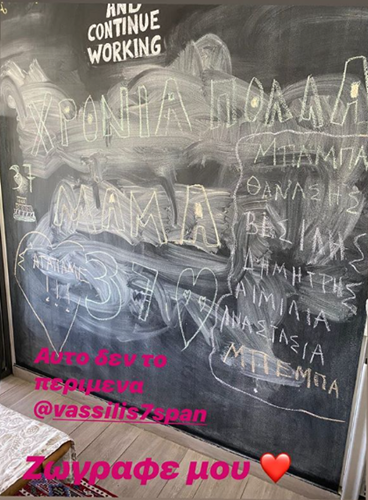 AND
CONTINUE
WORKING
ΧΡΟΝΙΑ ΠΟΛΛΑ
ΜΑΜΑ
37
ΑΓΑΠΑΜΕ
37
ΜΠΑΜΠΑ
ΘΑΝΑΣΗΣ
ΒΑΣΙΛΗΣ
ΔΗΜΗΤΡΗΣ
ΑΙΜΙΛΙΑ
ΑΝΑΣΤΑΣΙΑ
ΜΠΕΜΠΑ
Αυτο δεν το
περιμενα
@vassilis7span
Ζωγραφε μου ❤️